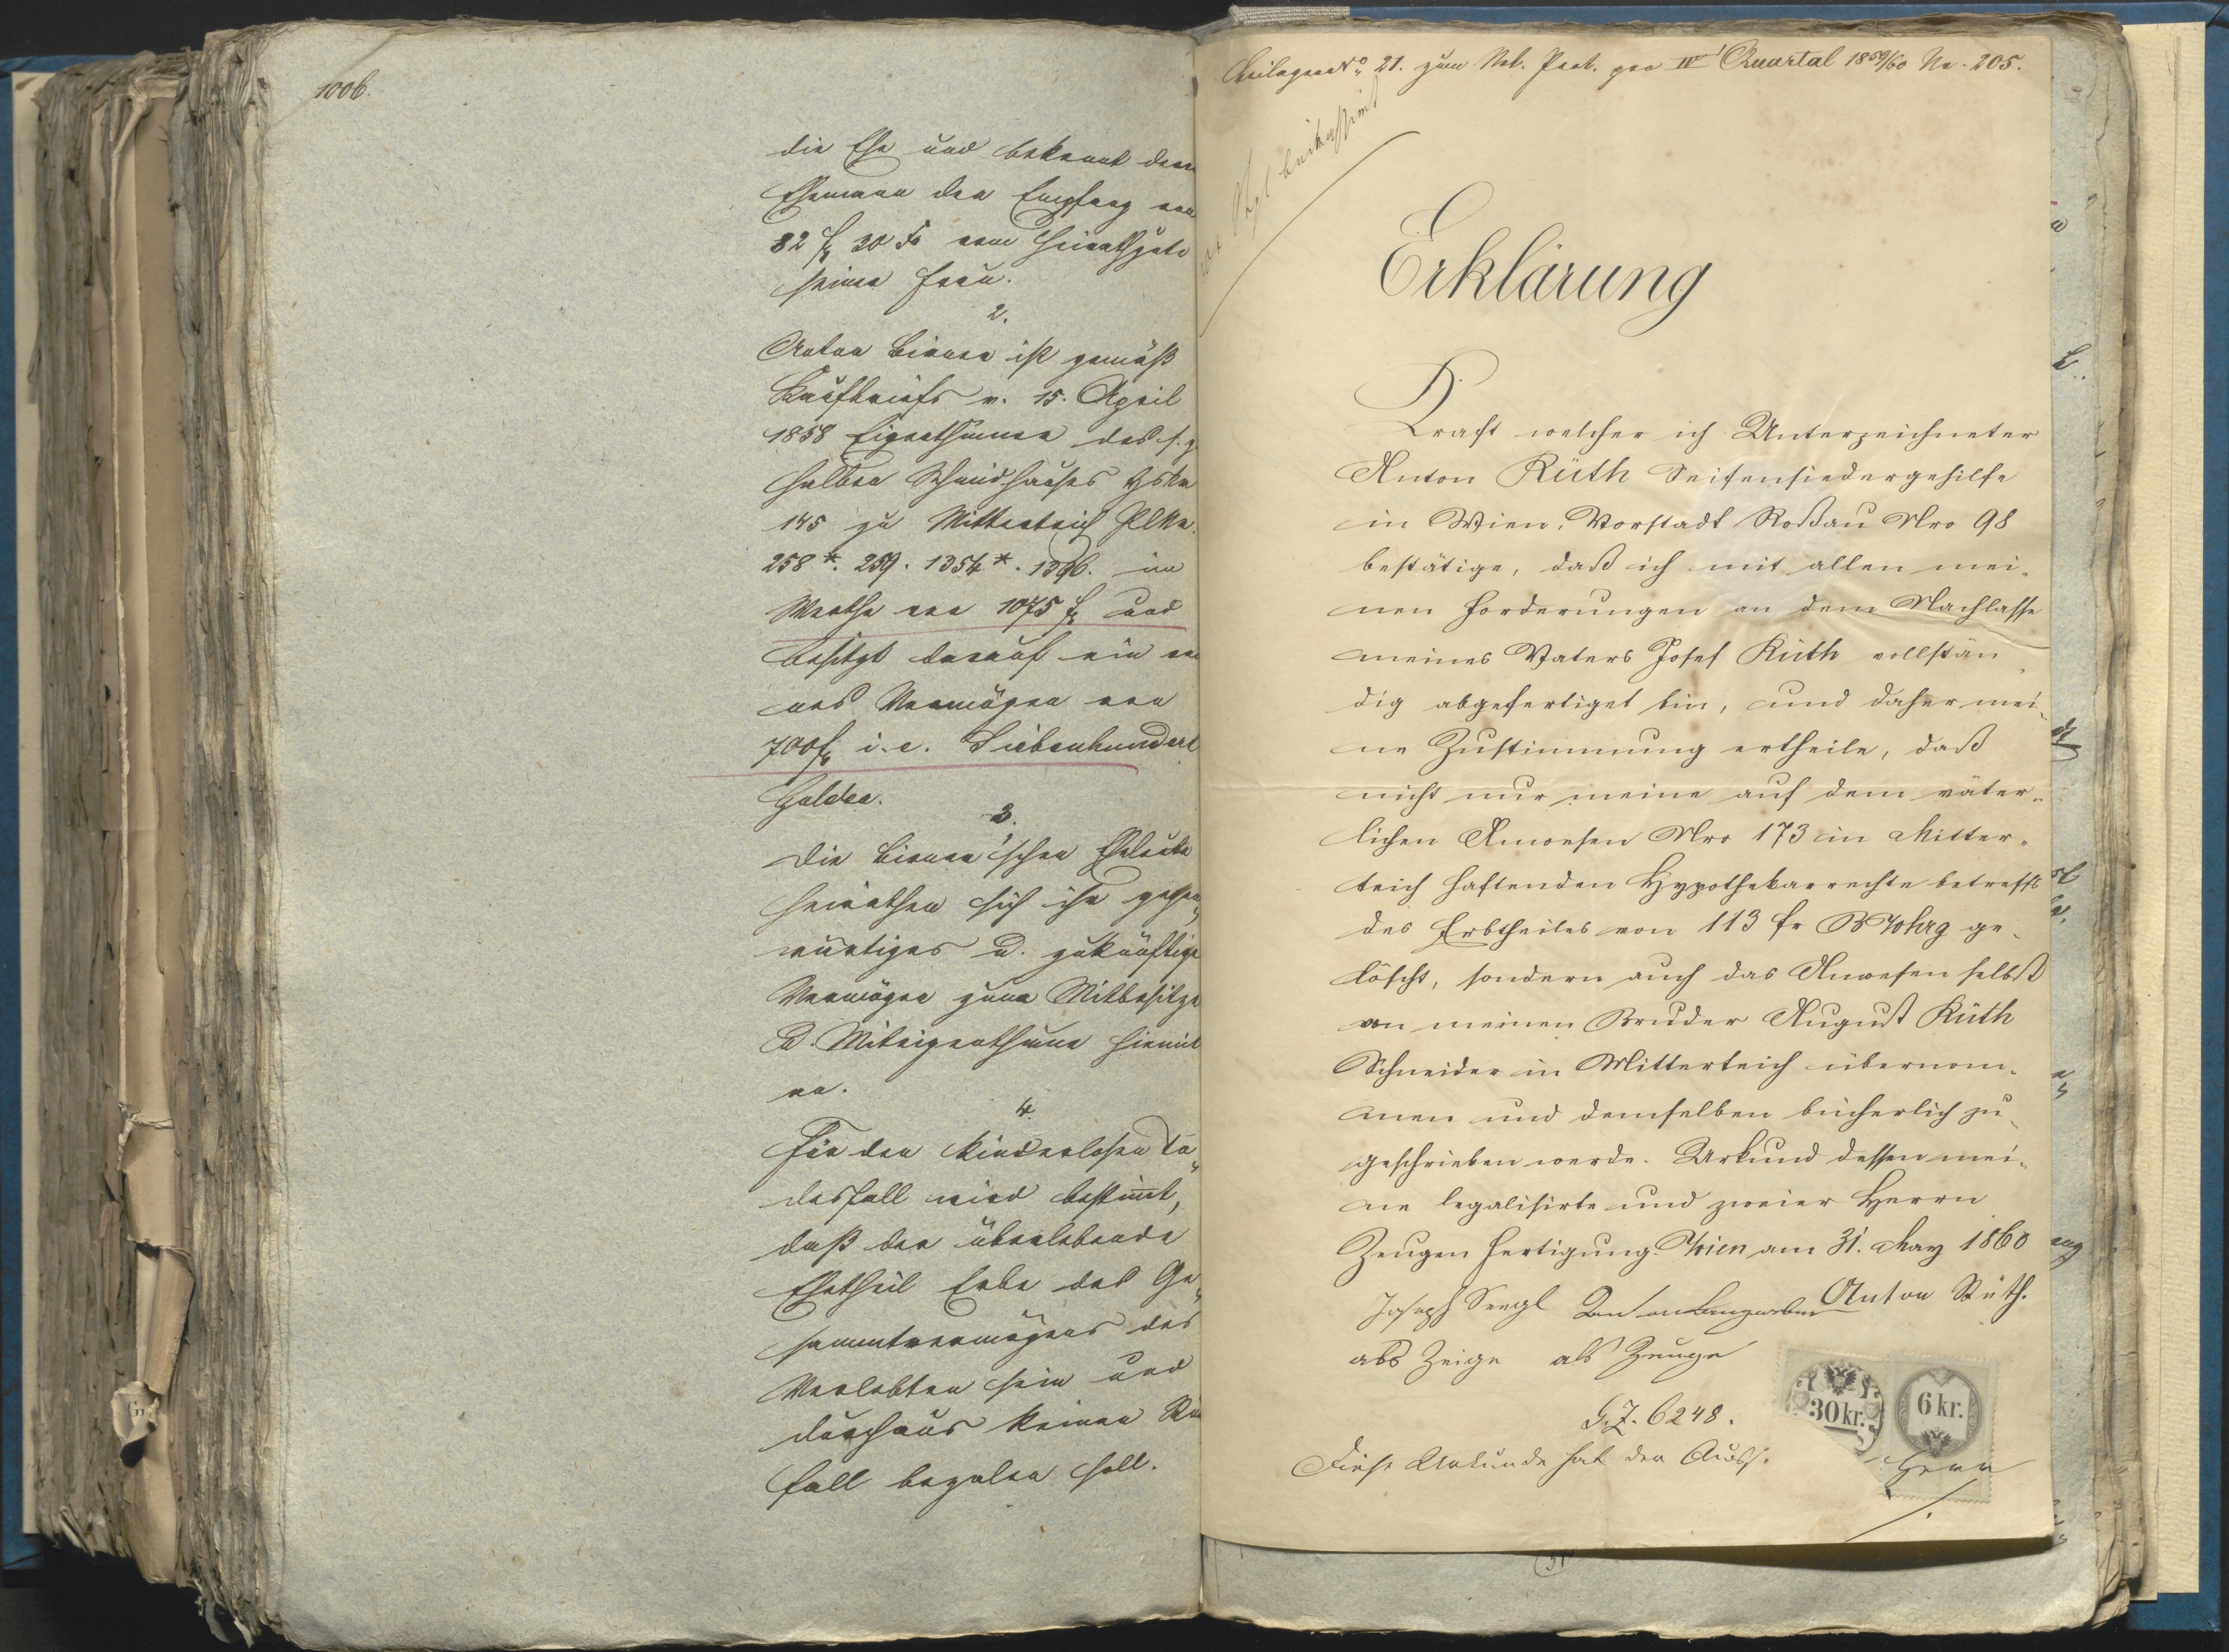 1006.
die Ehe und bekennt dem
Ehemann den Empfang von
82 f 30 x vom Heirathgute
seiner Frau.
2.
Anton Bienen ist gemäß
Kaufbriefs v. 15. April
1858 Eigenthümer des s. g.
halben Schmidhauses HsNr
145 zu Mitterteich PlNr.
258*. 259. 1354*. 1396. im
Werthe von 1075 f und
besitzt darauf ein rei
nes Vermögen von
700 f i. e. Siebenhundert
Gulden.
3.
Die Bienen'schen Eheleute
heirathen sich ihr gegen„
wärtiges u. zukünftiges
Vermögen zum Mitbesitze
u. Miteigenthume hiemit
an.
4.
Für den kinderlosen To„
desfall wird bestimmt,
daß der überlebende
Ehetheil Erbe des Ge„
sammtvermögens des
Verlebten sein und
durchaus keinen Rü
fall bezalen soll.
Beilage No 21. zum Not. Prot. pro IV Quartal 1859/60 No. 205.
Erklärung
Kraft welcher ich Unterzeichneter
Anton Rüth Seifensiedergehilfe
in Wien, Vorstadt Roßau Nro 98
bestätige, daß ich mit allen mei„
nen Forderungen an dem Nachlasse
meines Vaters Josef Rüth vollstän„
dig abgefertiget bin, und daher mei„
ne Zustimmung ertheile, daß
nicht nur meine auf dem väter„
lichen Anwesen Nro 173 in Mitter„
teich haftenden Hypothekarrechte betreffs
des Erbtheiles von 113 fr RWhrg ge„
löscht, sondern auch das Anwesen selbst
von meinen Bruder August Rüth
Schneider in Mitterteich übernom„
men und demselben bücherlich zu„
geschrieben werde. Urkund dessen mei„
ne legalisirte und zweier Herrn
Zeugen Fertigung. Wien am 31. May 1860
Joseph Sengl Anton Anton Rüth.
als Zeige als Zeuge
G.Z. 6248.
30 kr. 6 kr.
Diese Urkunde hat der Ausst.
Herr